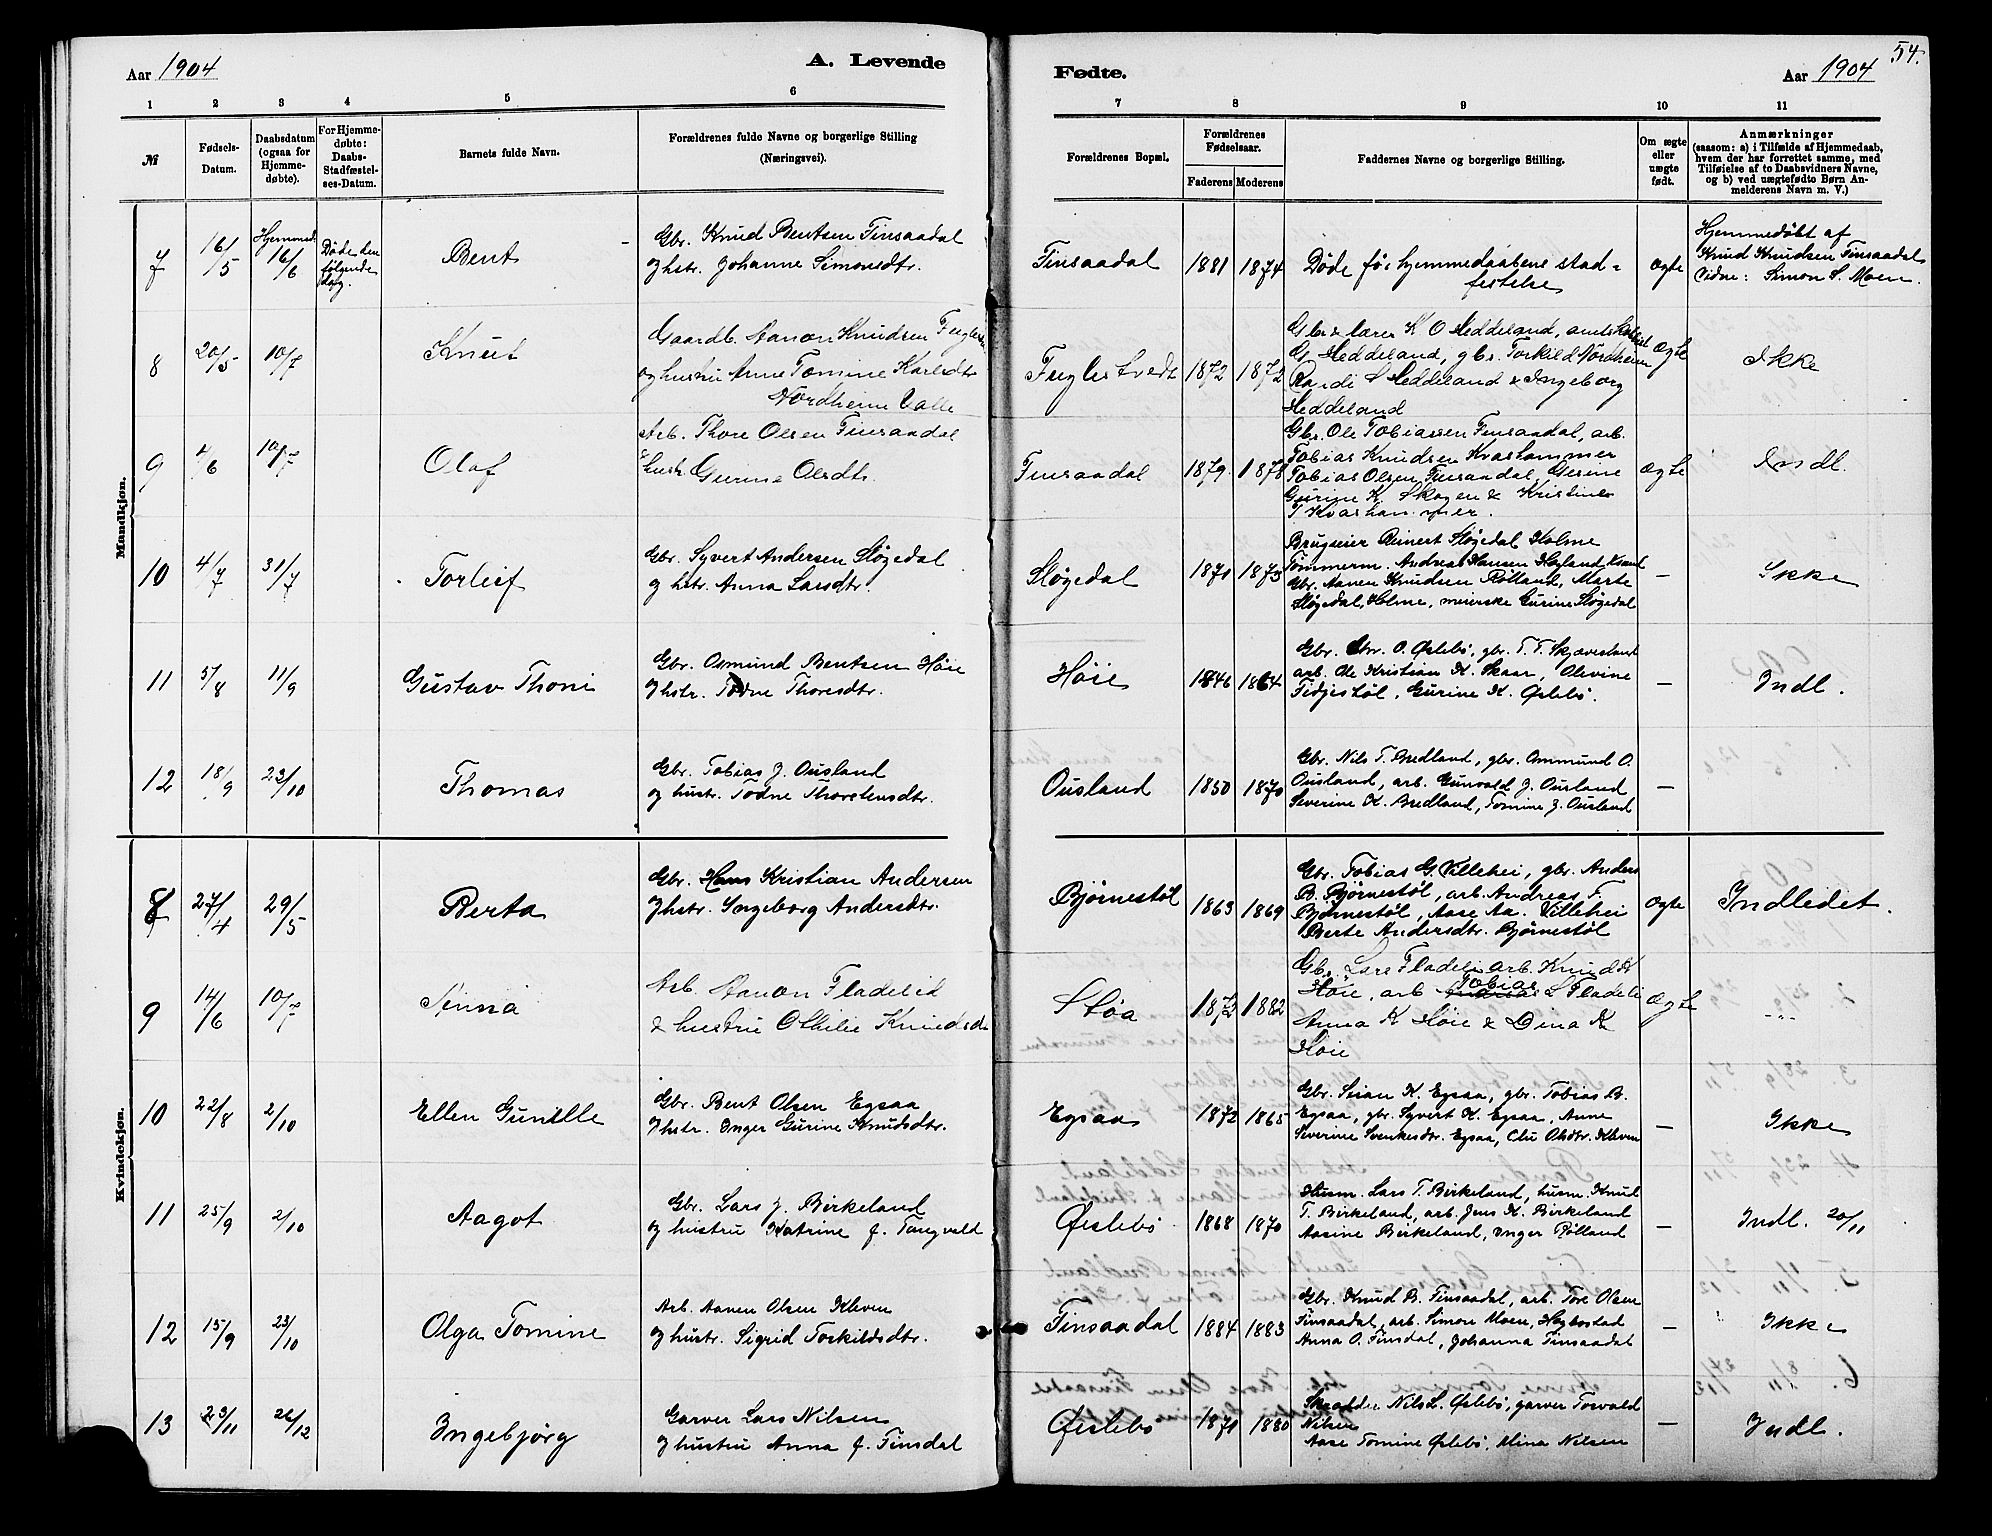 Aar 1904
A. Levende
1 2 3 4 5 6
№
Fødsels-Datum.
Daabsdatum (ogsaa for Hjemmedøbte).
For Hjemmedøbte: Daabs-Stadfæstelses-Datum.
Barnets fulde Navn.
Forældrenes fulde Navne og borgerlige Stilling
(Næringsvei).
Mandkjøn.
7 16/5 Hjemmed. 16/6 Døde den følgende dag. Bent
Gbr. Knud Bentsen Finsaadal
og hstr. Johanne Simonsdtr.
8 20/5 10/7 Knut
Gaardb. Aanon Knudsen
og hustru Anne Tomine Karlsdtr
Nordheim Valle
9 4/6 10/7 Olaf
Arb. Thore Olsen Finsaadal
& hustr. Gurine Olsdtr.
10 4/7 31/7 Torleif
Gbr. Syvert Andersen Sløgedal
og hstr. Anna Larsdtr.
11 5/8 11/9 Gustav Thoni
Gbr. Osmund Bentsen Høie
og hstr. Todne Thoresdtr.
12 18/9 23/10 Thomas
Gbr. Tobias J. Ousland
og hustr. Todne Thorstensdtr.
Kvindekjøn.
8 27/4 29/5 Berta
Gbr. Hans Kristian Andersen
og hstr. Ingeborg Andersdtr.
9 14/6 10/7 Anna
Arb. Aanon Fladeli
& hustru Othilie Knudsdtr
10 22/8 2/10 Ellen Gunille
Gbr. Bent Olsen Egsaa
og hstr. Inger Gurine Knudsdtr.
11 25/9 2/10 Aagot
Gbr. Lars J. Birkeland
og hustru Katrine J. Tangvald
12 15/9 23/10 Olga Tomine
Arb. Aanen Olsen Kleven
og hustr. Sigrid Torkildsdtr.
13 23/11 26/12 Ingebjørg
Garver Lars Nilsen
og hustru Anna J. Finsdal
Fødte.
Aar 1904
54.
7 8 9 10 11
Forældrenes Bopæl.
Forældrenes Fødselsaar.
Faderens Moderens
Faddernes Navne og borgerlige Stilling.
Om ægte eller uægte født.
Anmærkninger
(saasom: a) i Tilfælde af Hjemmedaab,
hvem der har forrettet samme, med
Tilføielse af to Daabsvidners Navne,
og b) ved uægtefødte Børn Anmelderens Navn m. V.)
Finsaadal 1881 1874
Døde før hjemmedaabens stadfestelse
ægte
Hjemmedøbt af
Knud Knudsen Finsaadal
Vidne: Simon S. Moen.
Fuglestvedt 1872 1872
Gbr & lærer K O Heddeland,
G Heddeland, gbr. Torkild Nordheim
Randi S Heddeland & Ingeborg
Heddeland
ægte Ikke
Finsaadal 1879 1878
Gbr. Ole Tobiassen Finsaadal, arb.
Tobias Knudsen Kvashammer
Tobias Olsen Finsaadal, Gerine
Gurine K. Skogen & Kristine
T Kvashammer.
ægte Indl.
Sløgedal 1871 1873
Brugseier Reinert Sløgedal Holme
Tømmerm. Andreas Hansen Høyland Ksand
Gbr. Aanen Knudsen Røiland, Marte
Sløgedal, Holme, meierske Gurine Sløgedal
— Ikke
Høie 1846 1864
Gbr. Chr. O. Øislebø, gbr. T. T. Skjævesland
arb. Ole Kristian K. Skaar, Olevine
Fidjestøl, Gurine K. Øislebø.
— Indl.
Ousland 1850 1870
Gbr. Nils T. Bredland, gbr. Ommund O.
Ousland, arb. Gunvald J. Ousland
Severine K. Bredland, Tomine J. Ousland
—
Bjørnestøl 1863 1869
Gbr. Tobias G. Villehei, gbr. Anders
B. Bjørnestøl, arb. Andreas F.
Bjørnestøl, Aase Aa. Villehei
Berte Andersdtr. Bjørnestøl
ægte Indledet.
Støa 1873 1882
Gbr. Lars Fladeli arb. Knud K
Høie, arb Tobias L Fladeli
Anna K Høie & Dina K
Høie
ægte -"-
Egsaa 1872 1865
Gbr. Stian K. Egsaa, gbr. Tobias B.
Egsaa, gbr. Syvert K. Egsaa, Anne
Severine Svenkesdtr. Egsaa, Olsdtr. Kleven
— Ikke
Øislebø 1868 1870
Husm. Lars T. Birkeland, husm. Knut
T. Birkeland, arb. Jens K. Birkeland
Aasine Birkeland, Inger Røiland
— Indl. 20/11
Finsaadal 1884 1883
Gbr. Knud B. Finsaadal, arb. Tore Olsen
Finsaadal, arb. Simon Moen, Hægbostad
Anna O. Finsdal, Johanna Finsaadal
— Ikke
Øislebø 1871 1880
Skrædder Nils L. Øislebø, garver Torvald
Nilsen
Aase Tomine Øislebø, Mina Nilsen
— Indl.